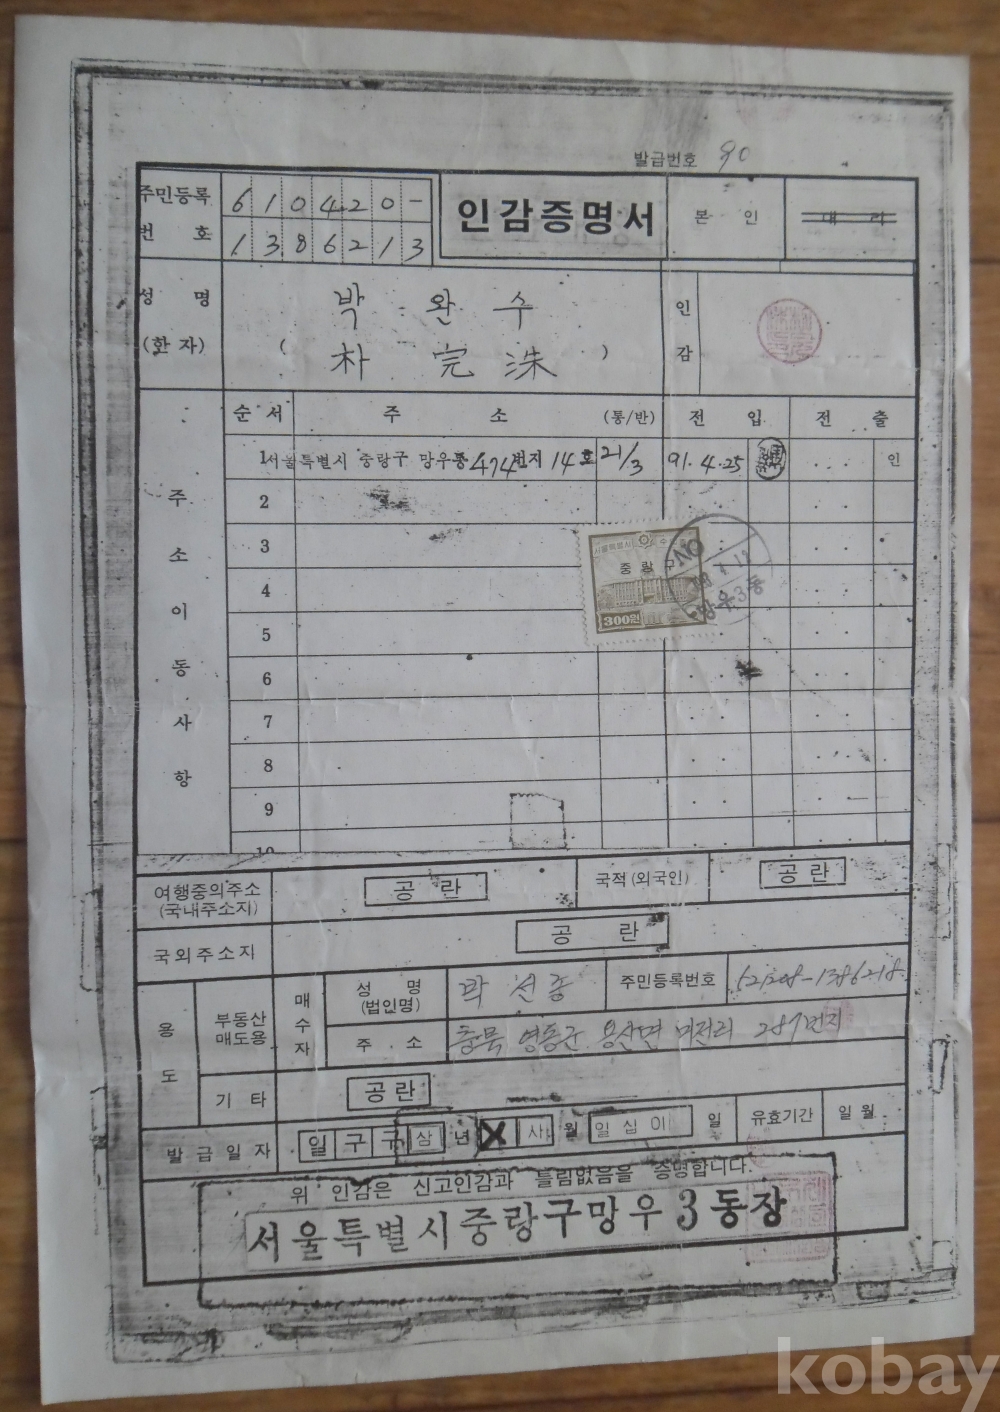 발급번호 90
주민등록 번호 610420-
1386213
인감증명서
본인
대리
성명 박완수
(화자) (朴完洙)
인감
순서 주소 (통/반) 전입 전출
주소이동사항
1 서울특별시 중랑구 망우동 474번지 14호 21/3 91.4.25 인
2
3
4
5
6
7
8
9
10
서울특별시
중랑구
300원
망우3동
여행중의주소 (국내주소지) 공란 국적(외국인) 공란
국외주소지 공란
용도 부동산 매도용 매수자 성명 (법인명) 박선종 주민등록번호
주소 충북 영동군 용산면 미전리 287번지
기타 공란
발급일자 일구구삼년 사월 일십이일 유효기간 일월
위 인감은 신고인감과 틀림없음을 증명합니다.
서울특별시중랑구망우3동장
kobay